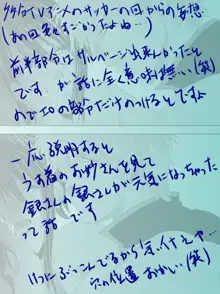 アニメのサッカーの回からの妄想
(あの回もすごかったよね…)
前半部分はサルベージ出来んかったと
です が 話に全く意味無い(笑)
のでエロの部分だけのっけるとですよ
一応説明すると
うさ着のお妙さんを見て
銀さんの銀さんが元気になっちゃった
って話 です
いつにぶっこんでるから気イケナァー
穴の位置 おかしい(笑)